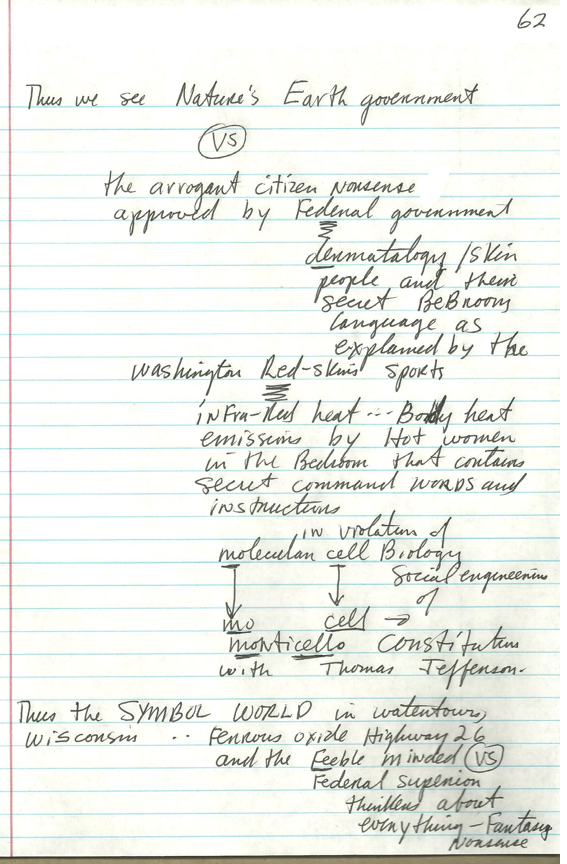 62
Thus we see Nature's Earth government
VS
the arrogant citizen nonsense
approved by Federal government
dermatalogy / skin
people and their
secret BeBroom
language as
explained by the
Washington Red-skins sports
infra-Red heat --- Body heat
emissions by Hot women
in the Bedroom that contains
secret command words and
instructions
in violation of
molecular cell Biology
Social engineering
of
mo cell →
monticello Constitution
with Thomas Jefferson.
Thus the SYMBOL WORLD in watertown,
wisconsin .. Ferrous oxide Highway 26
and the Feeble minded VS
Federal superior
thinkers about
everything - Fantasy
Nonsense